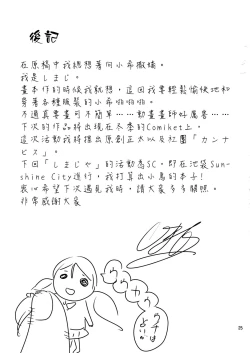 後記
在原稿中我總想著向小希撒嬌。
我是しまじ。
畫本作的時候我就想，這回我要輕鬆愉快地和
穿著各種服裝的小希啪啪啪。
不過真要畫可不簡單……動畫畫師好厲害……
下次的作品將出現在冬季的Comiket上。
這次活動我將推出原創正太以及社團「カンナ
ビス」。
下回「しまじや」的活動為SC，即在池袋Sun-
shine City進行，我打算出小鳥的本子！
衷心希望下次遇見我時，請大家多多關照。
非常感謝大家
25